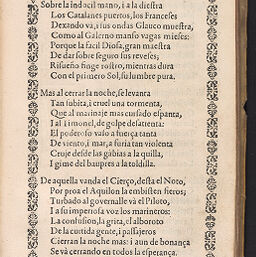 Sobre la indocil mano, i a la diestra
Los Catalanes puertos, los Franceses
Dexando và, i sus ondas Glauco muestra,
Como al Galerno manso vagas mieses:
Porque la facil Diosa, gran maestra
De dar sobre seguro sus reveses;
Risueño finge rostro, mientras dura
Con el primero Sol, su lumbre pura.
Mas al cerrar la noche, se levanta
Tan subita, i cruel una tormenta,
Que al marinaje mas cursado espanta,
I al i monel, de golpe desatienta:
El poderoso vaso a fuerça tanta
De viento, i mar, a furia tan violenta
Cruje desde las gabias a la quilla,
I gime del baupres a la toldilla.
De aquella vanda el Cierço, desta el Noto,
Por proa el Aquilon la embisten fieros;
Turbado al governalle và el Piloto,
I a su imperiosa voz los marineros:
La confusion, la grita, el alboroto
De la cuitida gente, i passajeros
Cierran la noche mas: i aun de bonança
Se và cerrando en todos la esperança.